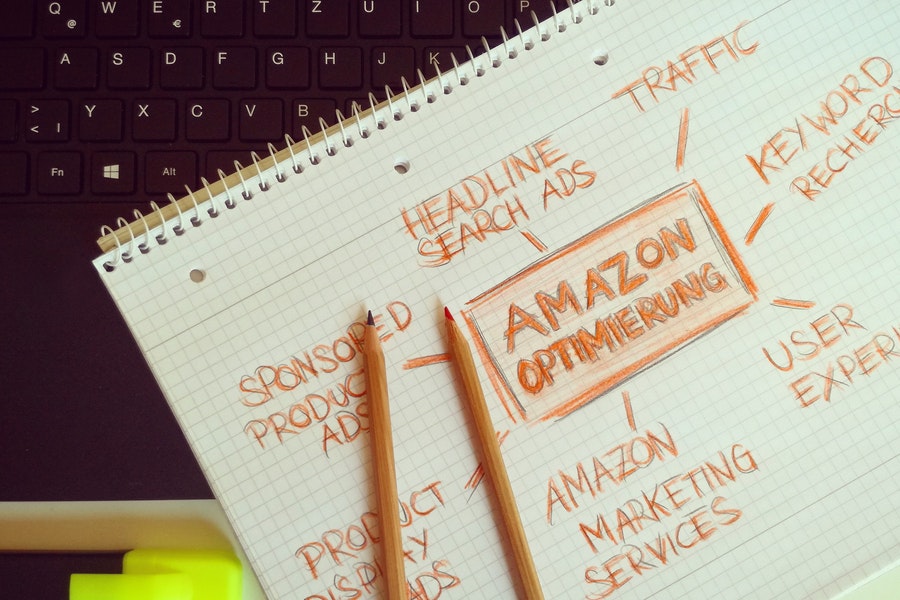 Q W E R T Z U I O P
@ €
A S D F G H J K
> Y X C V B
< |
Fn Alt
TRAFFIC
KEYWORD
RECHERC
HEADLINE
SEARCH ADS
AMAZON
OPTIMIERUNG
SPONSORED
PRODUCT
ADS
USER
EXPERI
AMAZON
MARKETING
SERVICES
PRODUCT
DISPLAY
ADS